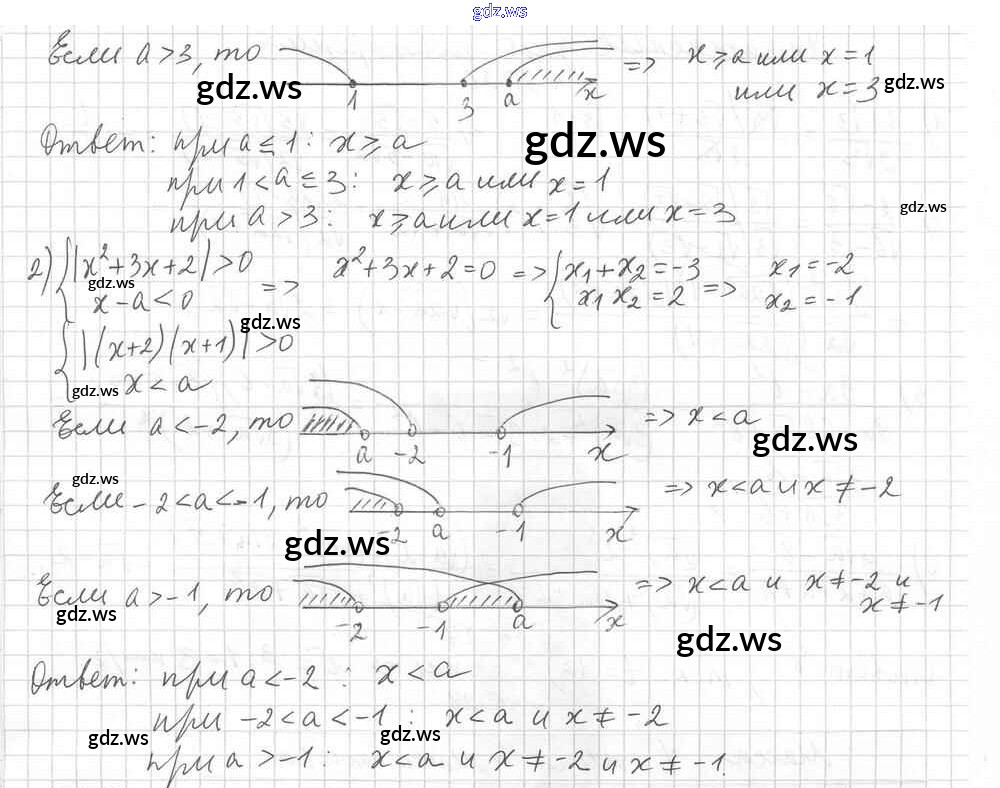 gdz.ws
Если a>3, то 1 3 a x => x⩾a или x=1
или x=3
gdz.ws gdz.ws
Ответ: при a ≤ 1: x⩾a
gdz.ws
при 1<a≤3: x⩾a или x=1
при a>3: x⩾a или x=1 или x=3
gdz.ws
2) { |x²+3x+2|>0
x-a<0 => x²+3x+2=0 => { x₁+x₂=-3
x₁x₂=2 => x₁=-2
x₂=-1
gdz.ws
gdz.ws
{ |(x+2)(x+1)|>0
x<a
gdz.ws
Если a<-2, то a -2 -1 x => x<a
gdz.ws
gdz.ws
Если -2<a<-1, то -2 a -1 x => x<a и x≠-2
gdz.ws
Если a>-1, то -2 -1 a x => x<a и x≠-2 и
x≠-1
gdz.ws
gdz.ws
Ответ: при a<-2: x<a
при -2<a<-1: x<a и x≠-2
gdz.ws gdz.ws
при a>-1: x<a и x≠-2 и x≠-1.